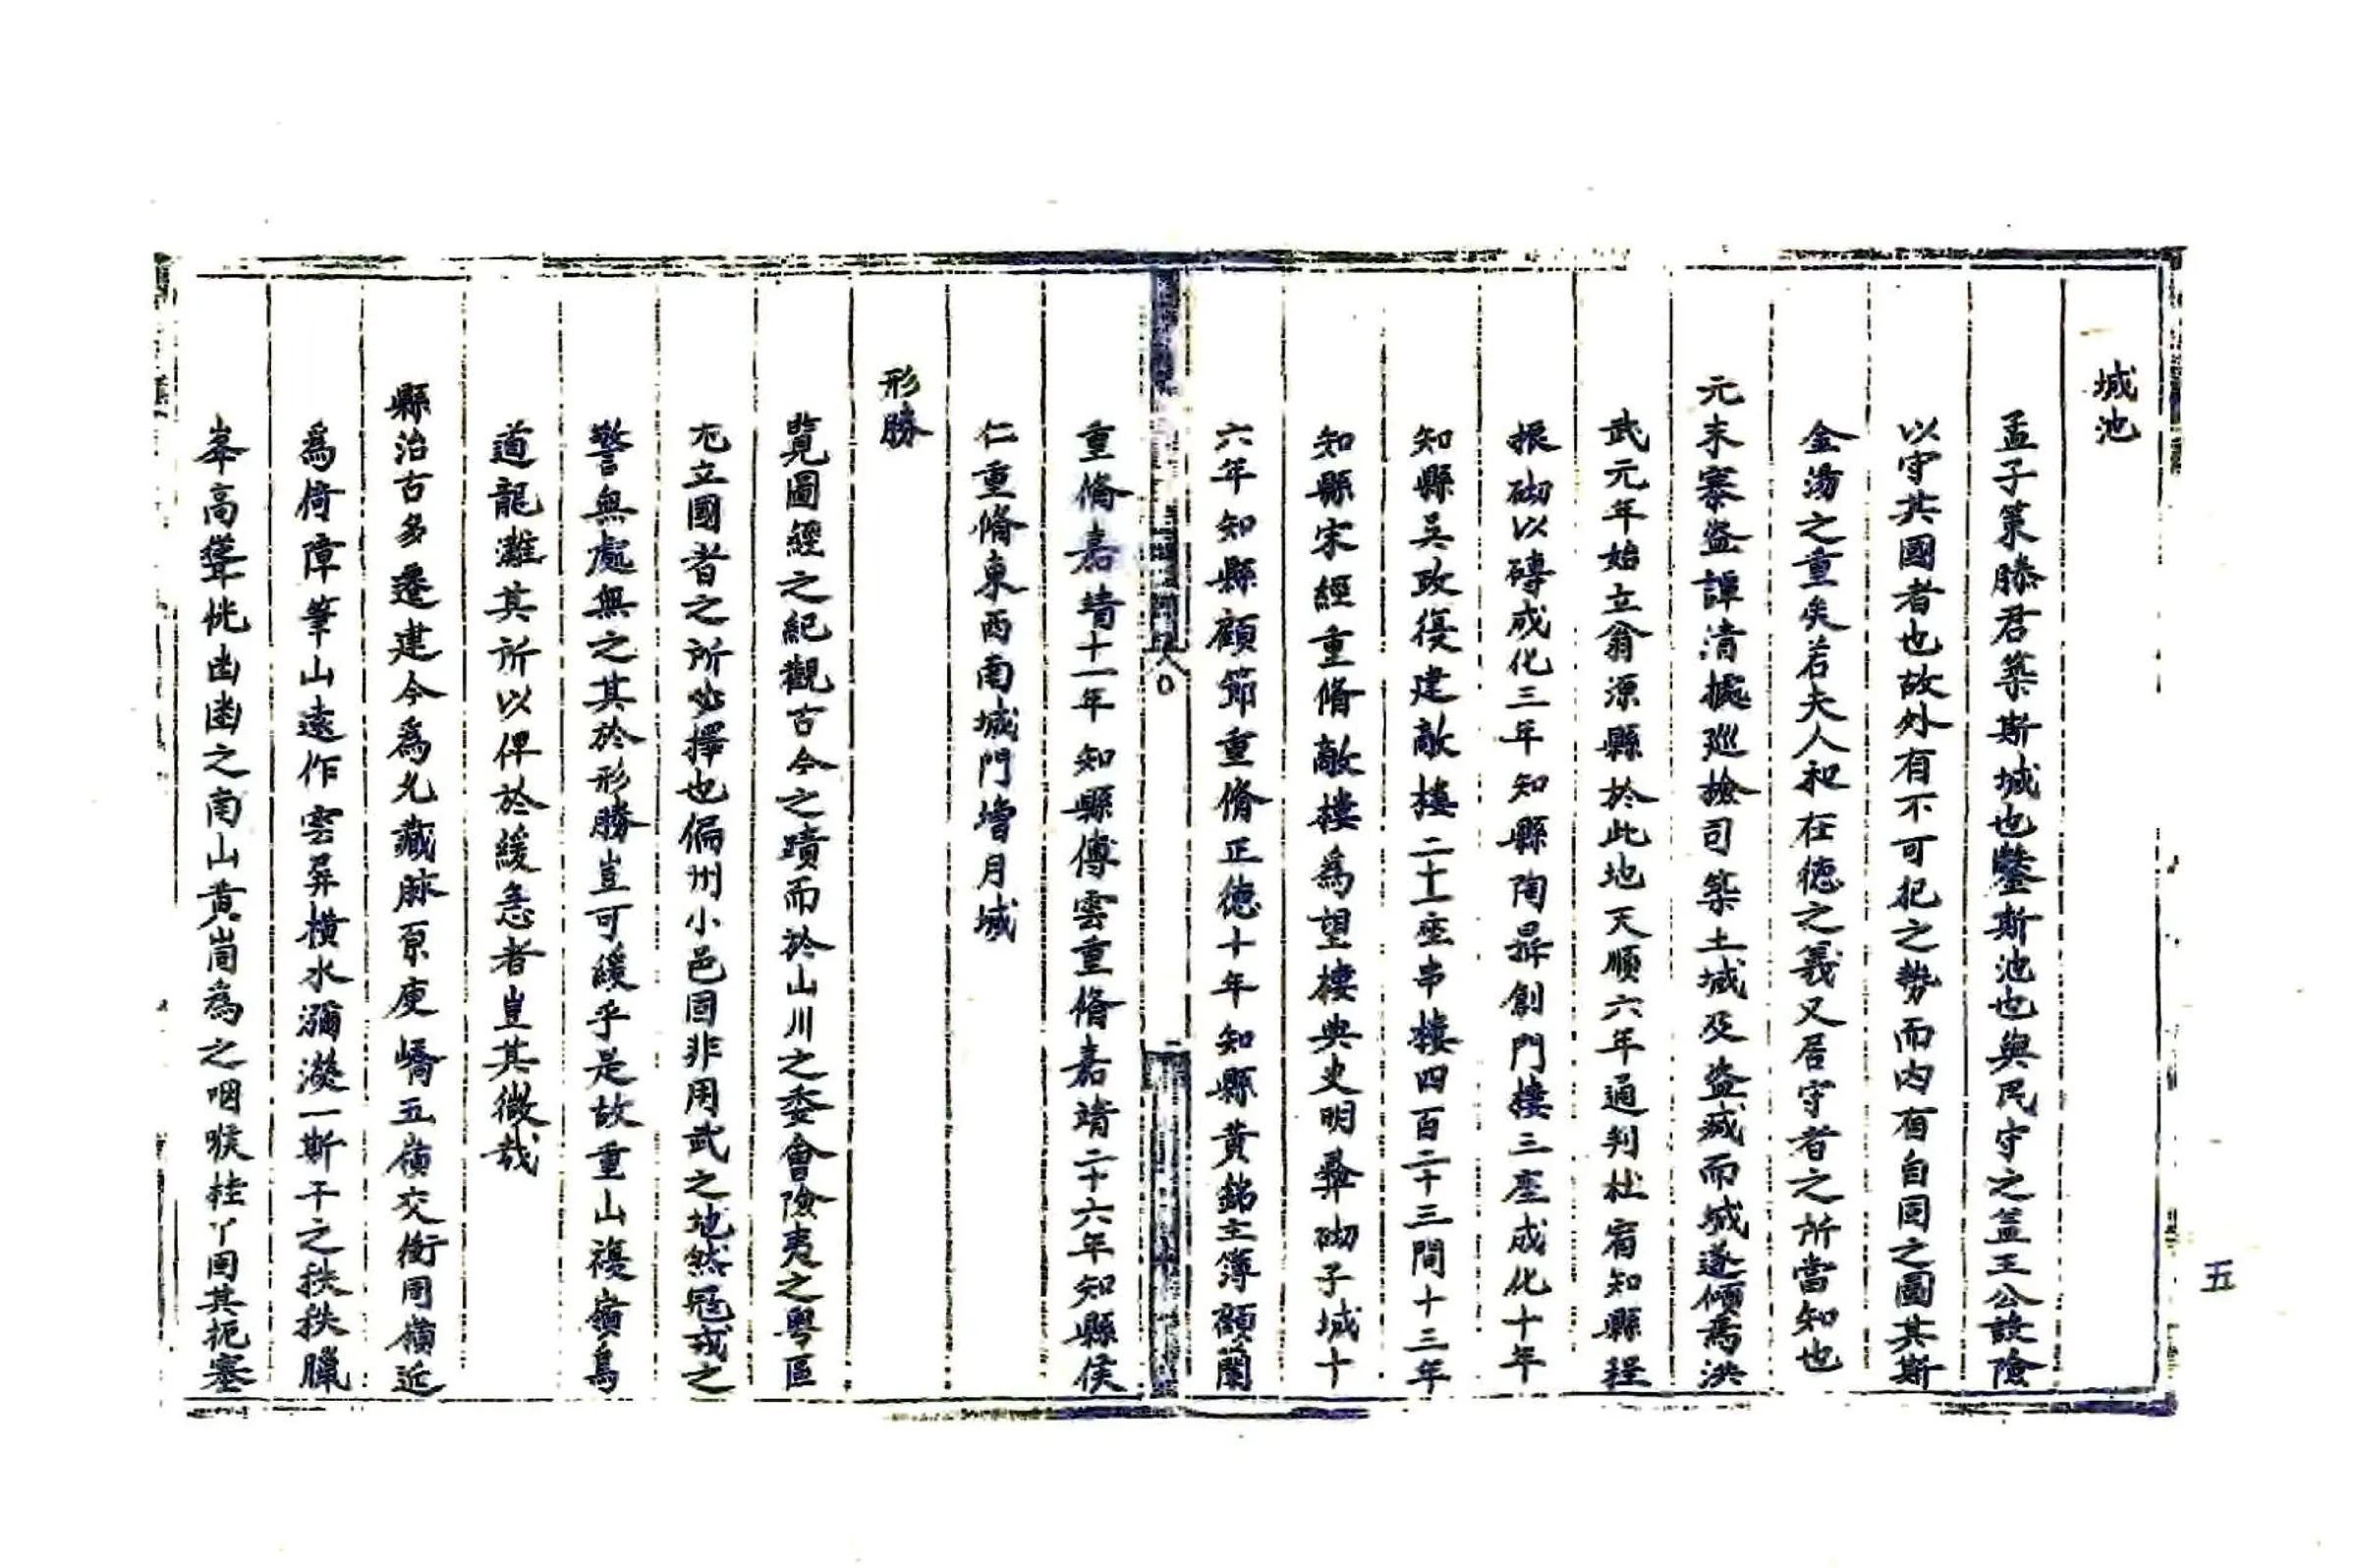 城池
孟子策滕君築斯城也鑿斯池也與民守之盖王公設險
以守其國者也故外有不可犯之勢而内有自固之圖其斯
金湯之重矣若夫人和在德之義又居守者之所當知也
元末寨盗譚清據巡檢司築土城及盗滅而城遂傾焉洪
武元年始立翁源縣於此地天順六年通判杜宥知縣程
振砌以磚成化三年知縣陶鼎創門樓三座成化十年
知縣吳政復建敵樓二十一座串樓四百二十三間十三年
知縣宋經重脩敵樓為望樓典史明彝砌子城十
六年知縣顧節重脩正德十年知縣黄銘主簿顧蘭
重脩嘉靖十一年知縣傅雲重脩嘉靖二十六年知縣侯
仁重脩東西南城門增月城
形勝
覽圖經之紀觀古今之蹟而於山川之委會險夷之粤區
尤立國者之所必擇也偏州小邑固非用武之地然冦戎之
警無處無之其於形勝豈可緩乎是故重山複嶺鳥
道龍灘其所以俾於緩急者豈其微哉
縣治古多遷建今為允藏脉原庾嶠五嶺交衝同嶺近
為倚障筆山遠作雲屏横水瀰漾一斯干之秩秩臘
峯高聳桃凾凾之南山黄崗為之咽喉桂丫固其扼塞
五